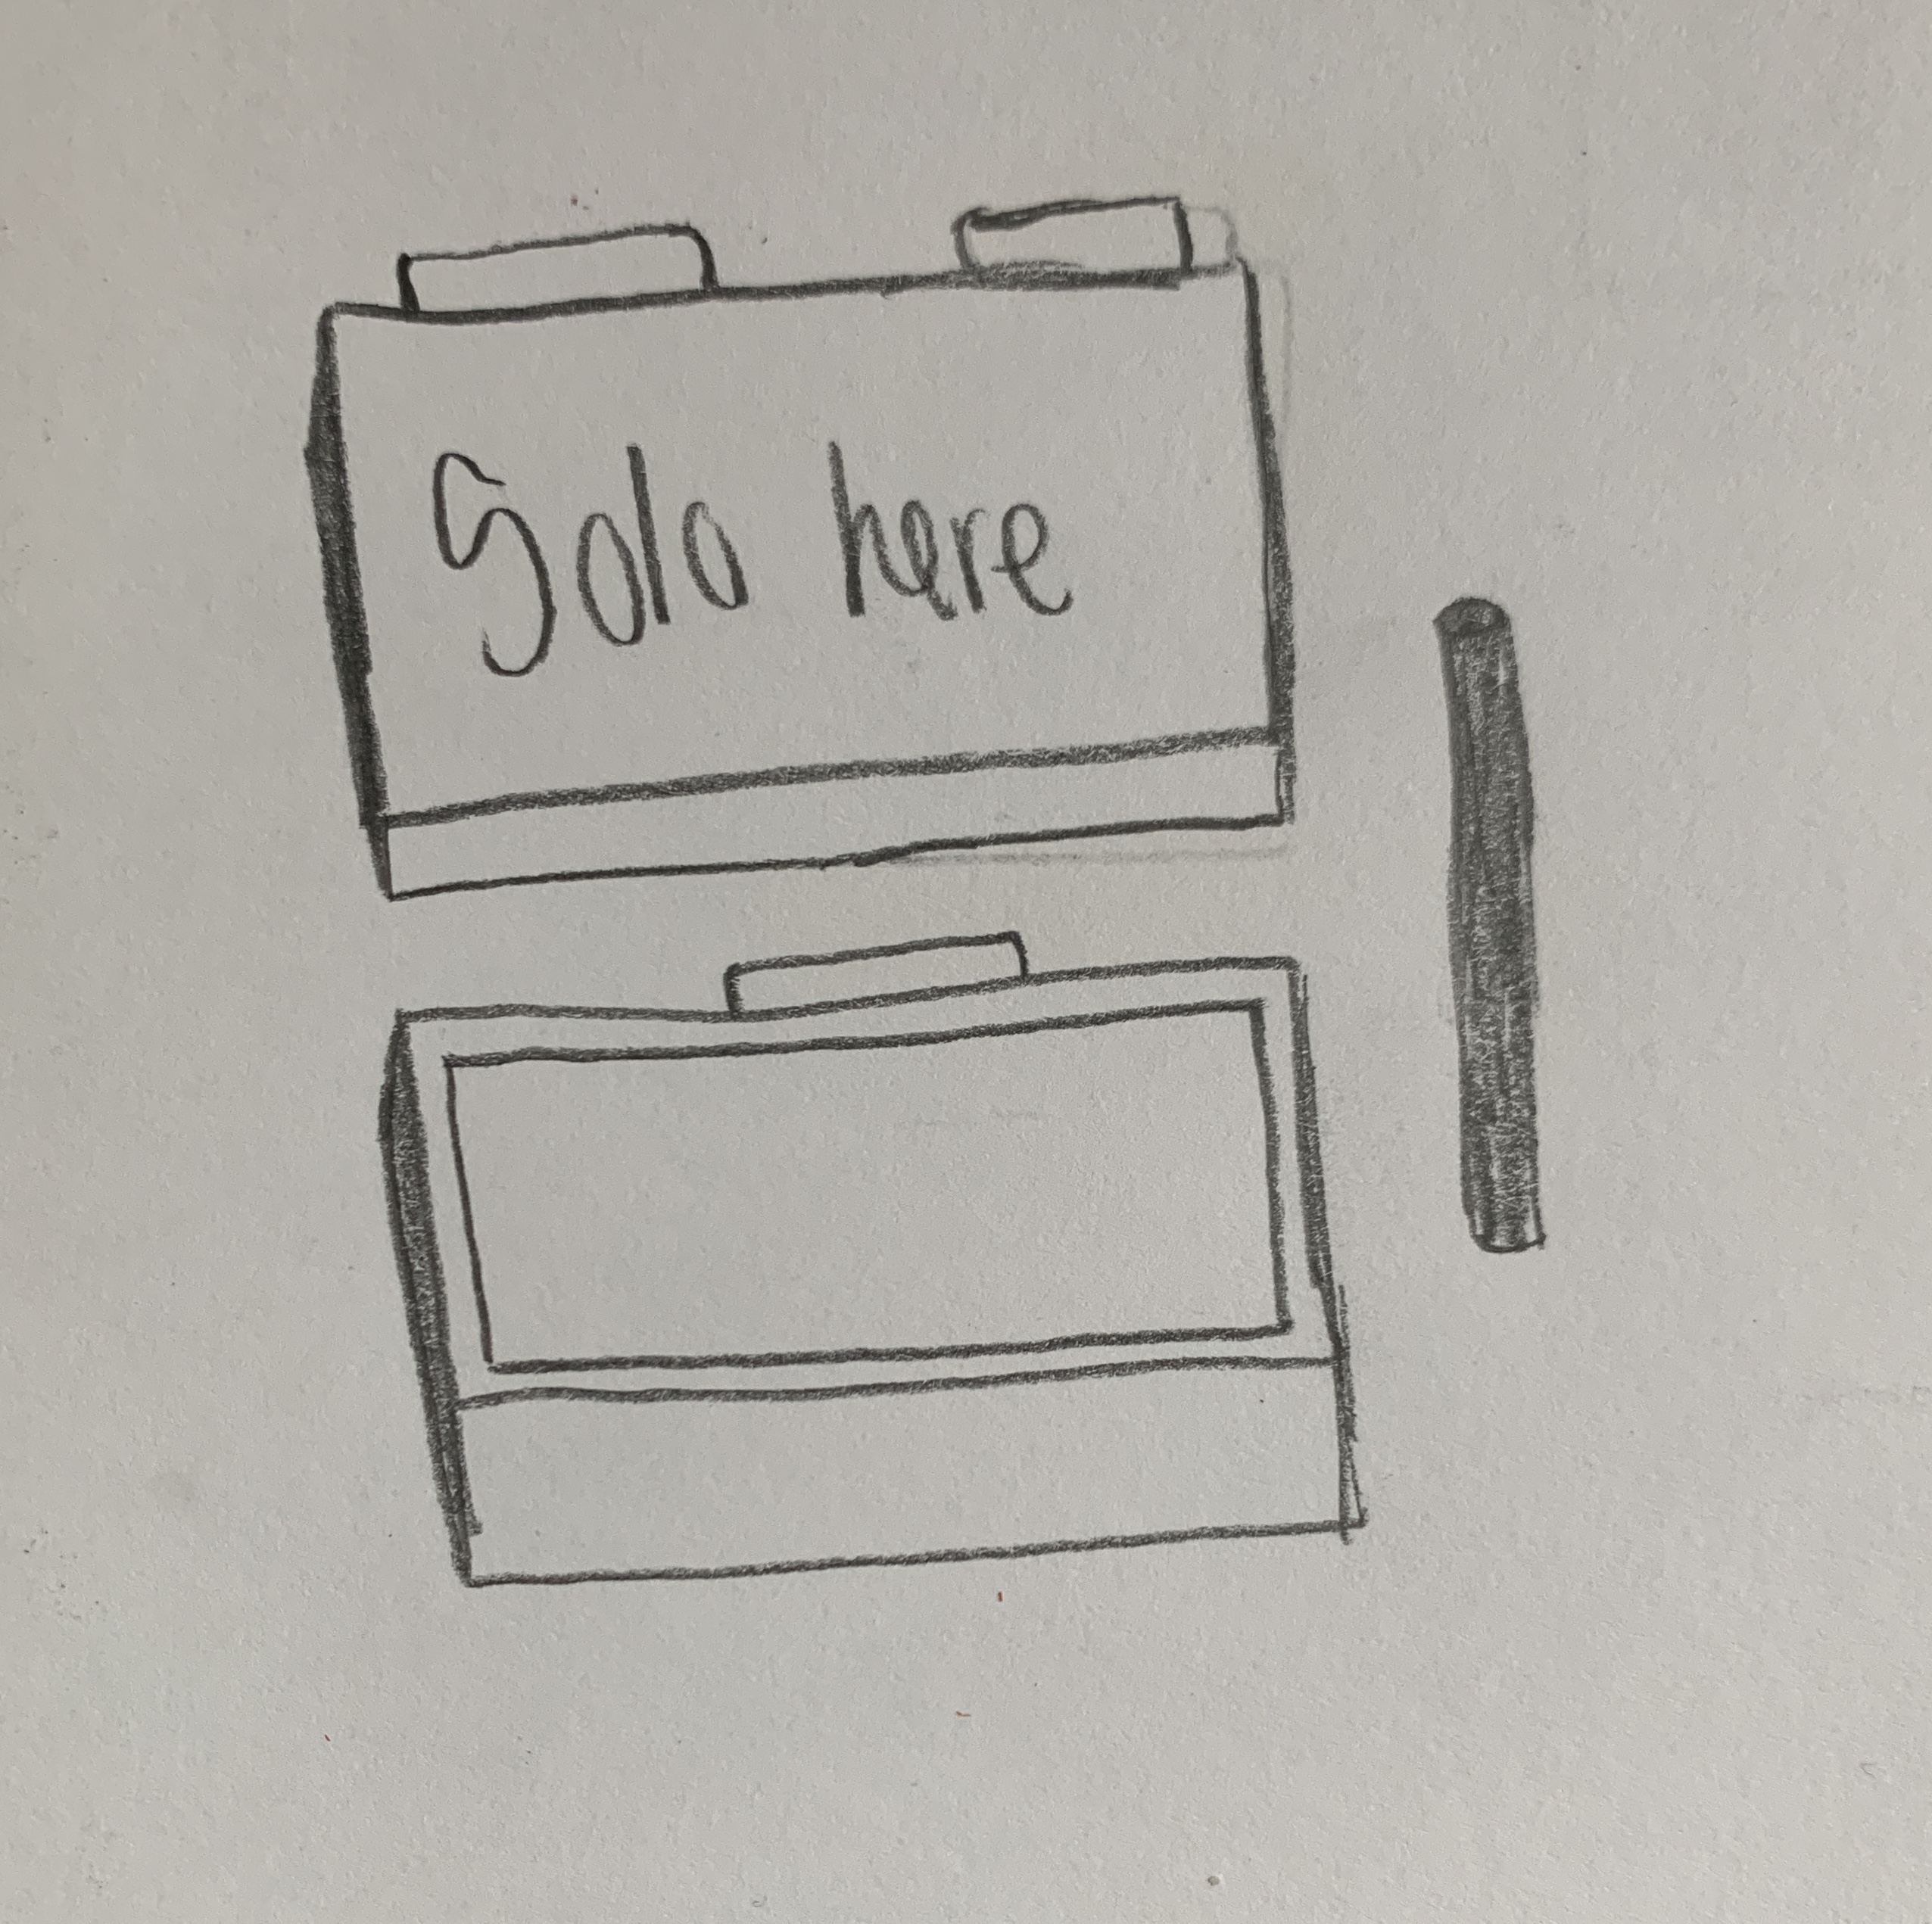 Solo here